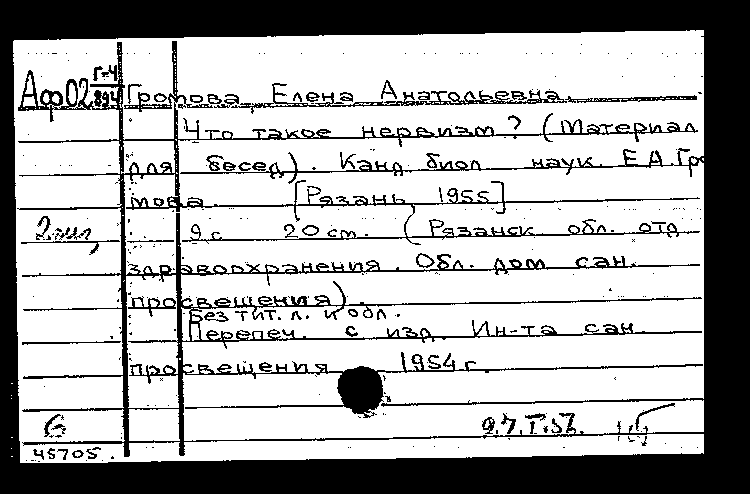 Аф02 Г-4/894 Громова, Елена Анатольевна.
Что такое нервизм? (Материал
для бесед). Канд. биол. наук. Е.А. Гро
мова. [Рязань, 1955]
9 с. 20 см. (Рязанск. обл. отд.
здравоохранения. Обл. дом сан.
просвещения).
Без тит. л. и обл.
Перепеч. с изд. Ин-та сан.
просвещения 1954 г.
6
45705.